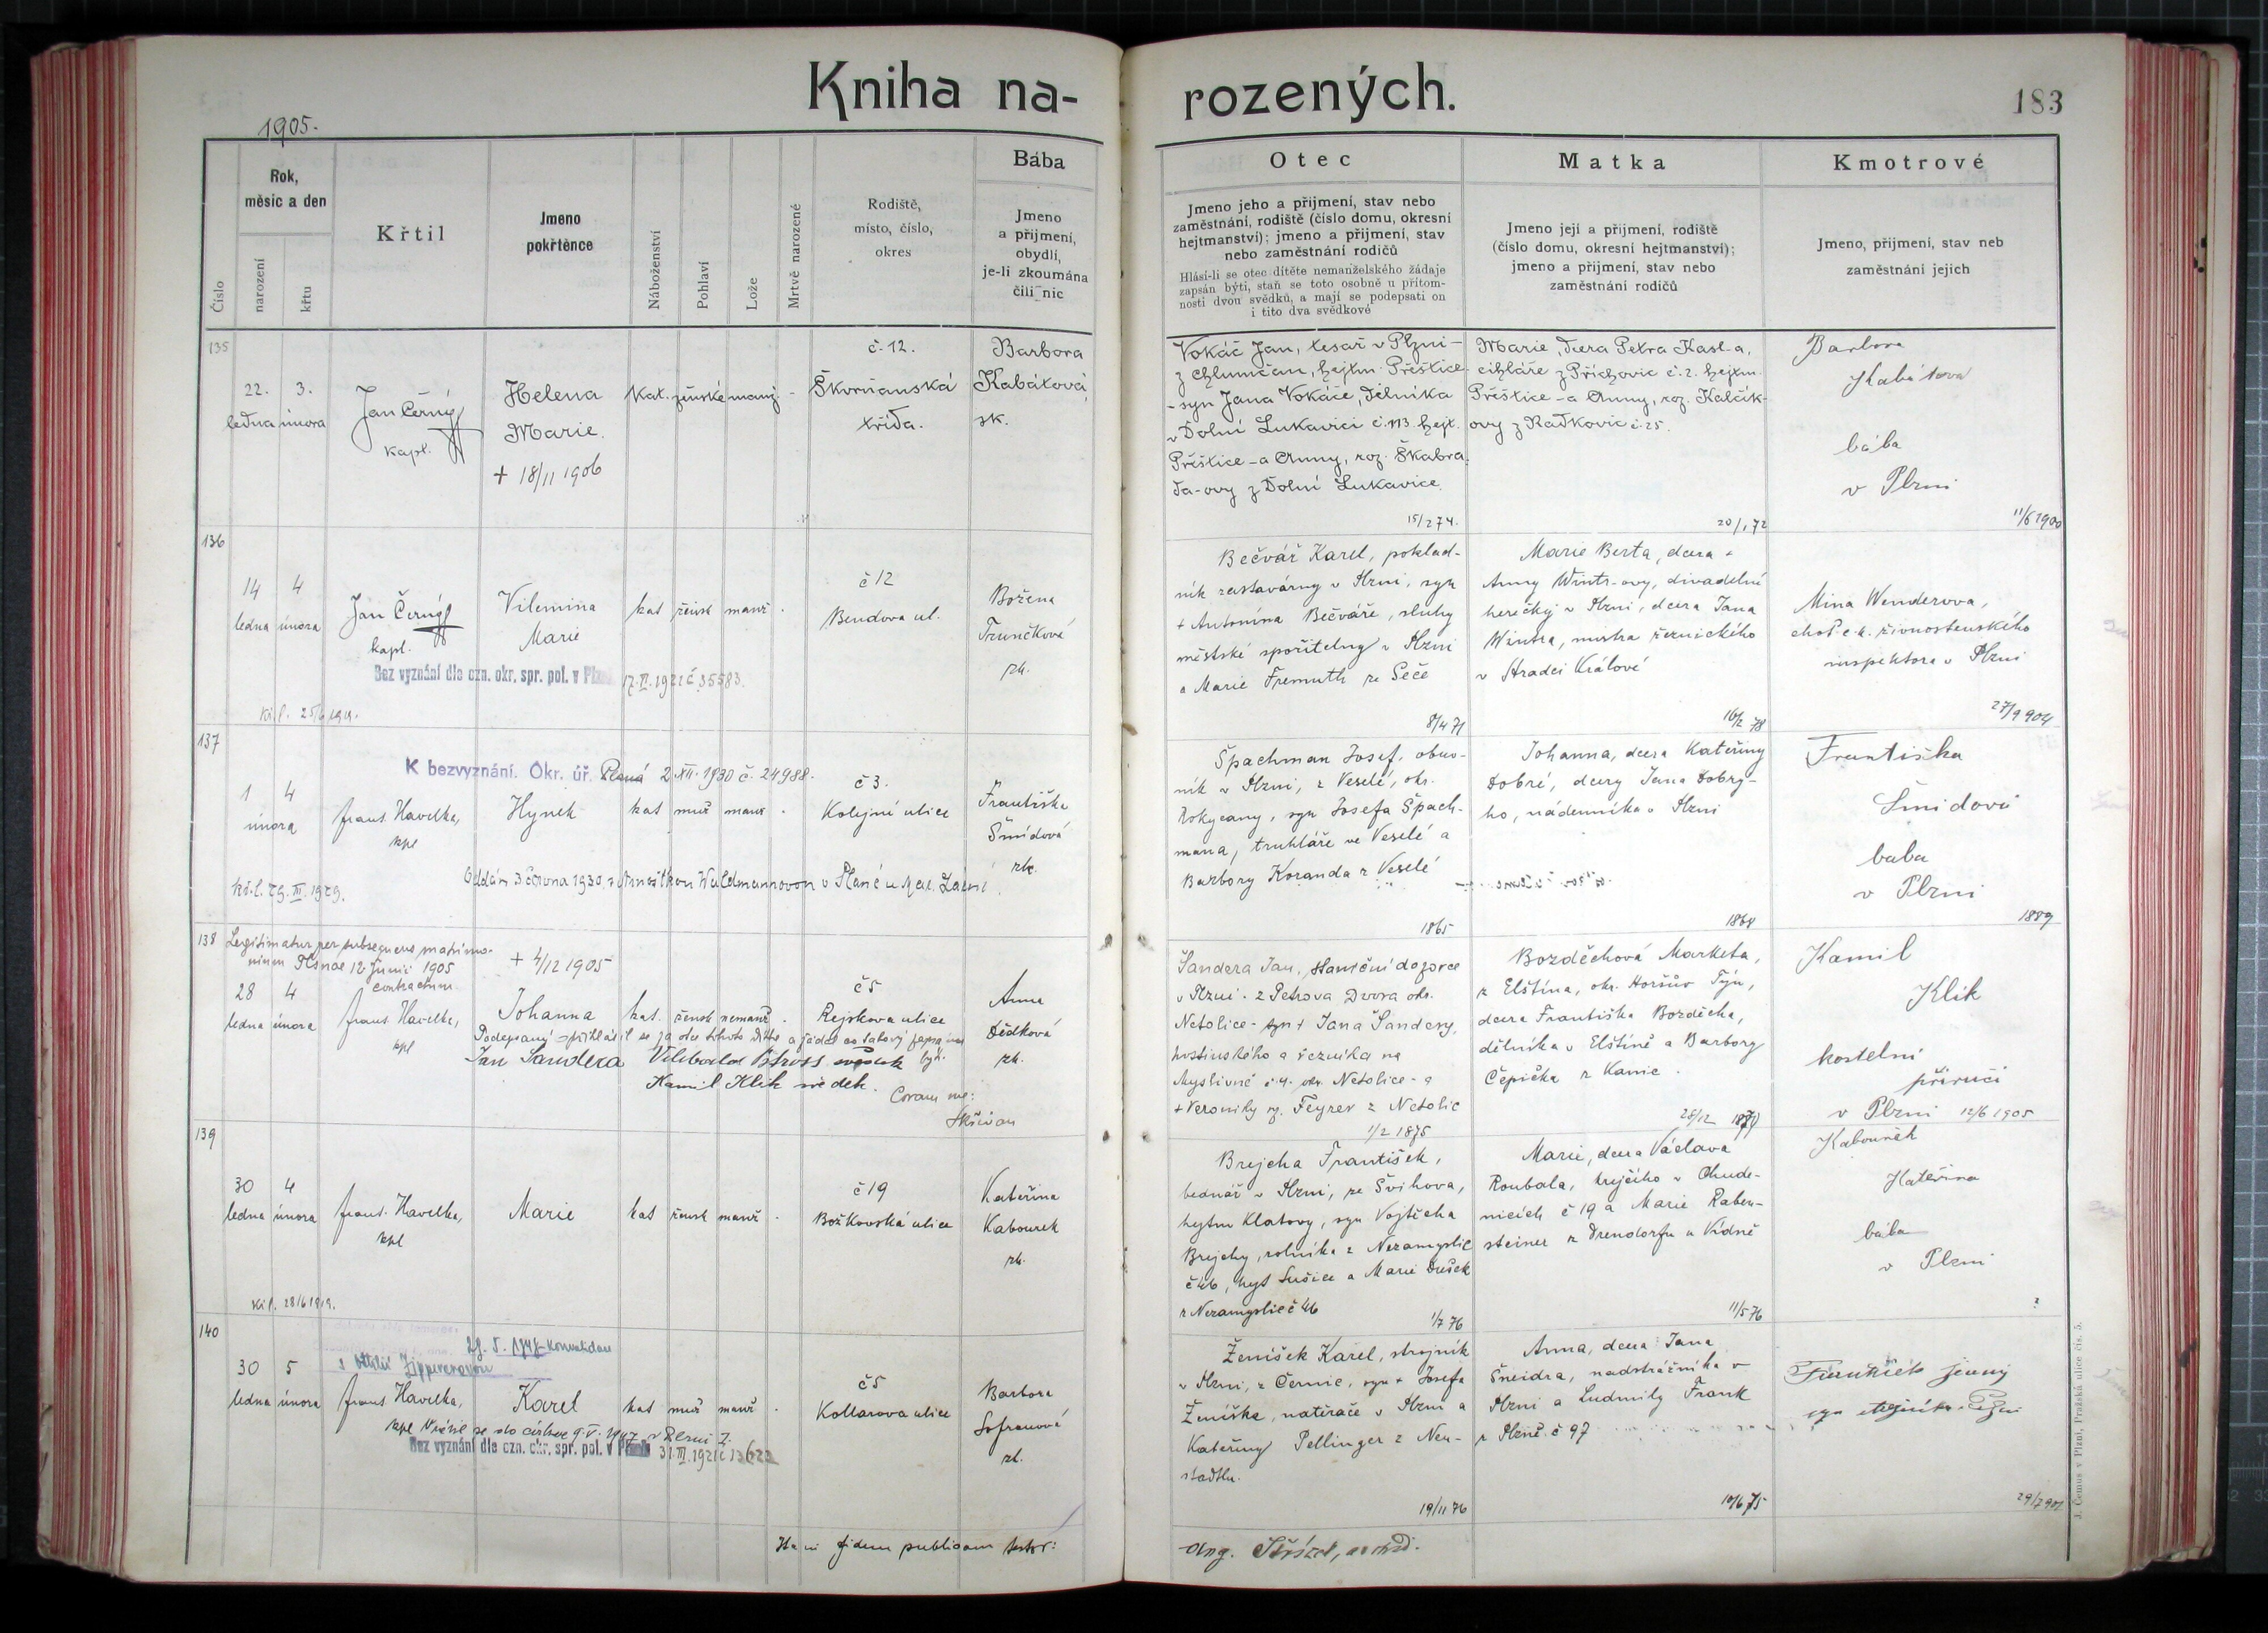 Kniha na-
rozených.
183
1905.
Číslo
Rok,
měsíc a den
narození
křtu
Křtil
Jmeno
pokřtěnce
Náboženství
Pohlaví
Lože
Mrtvě narozené
Rodiště,
místo, číslo,
okres
Bába
Jmeno
a přijmení,
obydlí,
je-li zkoumána
čili nic
Otec
Jmeno jeho a přijmení, stav nebo
zaměstnání, rodiště (číslo domu, okresní
hejtmanství); jmeno a přijmení, stav
nebo zaměstnání rodičů
Hlásí-li se otec dítěte nemanželského žádaje
zapsán býti, staň se toto osobně u přítom-
nosti dvou svědků, a mají se podepsati on
i tito dva svědkové
Matka
Jmeno její a přijmení, rodiště
(číslo domu, okresní hejtmanství);
jmeno a přijmení, stav nebo
zaměstnání rodičů
Kmotrové
Jmeno, přijmení, stav neb
zaměstnání jejich
135
22. 3.
ledna února
Jan Černý
kapl.
Helena
Marie.
+ 18/11 1906
kat. ženské manž -
č. 12.
Škvrňanská
třída.
Barbora
Kabátová,
zk.
Vokáč Jan, tesař v Plzni -
z Chlumčan, hejtm. Přeštice
- syn Jana Vokáče, dělníka
v Dolní Lukavici č. 113 hejt.
Přeštice - a Anny, roz. Škabra-
da-ovy z Dolní Lukavice.
15/2 74.
Marie, dcera Petra Kasl-a,
cihláře z Příchovic č. 2. hejtm.
Přeštice - a Anny, roz. Kalčík-
ovy z Radkovic č. 25.
20/1 72
Barbora
Kabátová
bába
v Plzni
11/6 1900
136
14 4
ledna února
Jan Černý
kapl.
Vilemina
Marie
kat žensk manž .
č 12
Bendova ul.
Božena
Trunčková
zk.
Bez vyznání dle ozn. okr. spr. pol. v Plzni 17. VI. 1921 č. 35583.
Kř. l. 25/6 1919.
Bečvář Karel, poklad-
ník zastavárny v Plzni, syn
+ Antonína Bečváře, sluhy
městské spořitelny v Plzni
a Marie Fremuth ze Seče
8/4 71
Marie Berta, dcera +
Anny Wintr-ovy, divadelní
herečky v Plzni, dcera Jana
Wintra, mistra řeznického
v Hradci Králové
16/2 78
Mina Wenderova,
choť c. k. živnostenského
inspektora v Plzni
27/9 904
137
K bezvyznání. Okr. úř. Planá 2. XII. 1930 č. 24988.
1 4
února
frant. Havelka,
kpl
Hynek
kat muž manž .
č 3.
Kolejní ulice
Františka
Šmídová
zk.
kř. l. 29. III. 1929.
Oddán 3 června 1930, s Waldmannovou v Plané u Mar. Lázní.
Špachman Josef, obuv-
ník v Plzni, z Veselé, okr.
Rokycany, syn Josefa Špach-
mana, truhláře ve Veselé a
Barbory Koranda z Veselé
1865
Johanna, dcera Kateřiny
Dobré, dcery Jana Dobry-
ho, nádenníka v Plzni
1868
Františka
Šmidová
baba
v Plzni
1889
138
Legitimatur per subsequens matrimo-
nium Plsnae 12 Junii 1905
contractum.
+ 4/12 1905
28 4
ledna února
frant. Havelka,
kpl
Johanna
kat. žensk nemanž .
č 5
Rejskova ulice
Anna
Dědková
zk.
Podepsaný přihlásil se za otce tohoto dítěte a žádal za takový zapsán býti.
Jan Šandera Vilibald svědek
Kamil Klik svědek.
Coram me:
Skřivan
Šandera Jan, staniční dozorce
v Plzni - z Petrova Dvora okr.
Netolice - syn + Jana Šandery,
hostinského a řezníka na
Myslivně č. 4. okr. Netolice - a
+ Veroniky roz. Feyrer z Netolic
1/2 1875
Bozděchová Marketa,
z Elštína, okr. Horšův Týn,
dcera Františka Bozděcha,
dělníka v Elštíně a Barbory
Čepička z Kanic.
28/12
Kamil
Klik
kostelní
příručí
v Plzni 12/6 1905
139
30 4
ledna února
frant. Havelka,
kpl
Marie
kat žensk manž .
č 19
Božkovská ulice
Kateřina
Kabourek
zk.
Kř. l. 28/6 1919.
Brejcha František,
bednář v Plzni, ze Švihova,
hejtm Klatovy, syn Vojtěcha
Brejchy, rolníka z Nezamyslic
č 46, hejt Sušice a Marie Dušek
z Nezamyslic č 46
1/7 76
Marie, dcera Václava
Roubala, krejčího v Chude-
nicích č 19 a Marie Raben-
steiner z Drendorfu u Vídně
11/5 76
Kabourek
Kateřina
bába
v Plzni
?
140
29. 5. 1947 konvalidace
s Ottilií Zippnerovou
30 5
ledna února
frant Havelka,
kpl
Karel
kat muž manž .
č 5
Kollarova ulice
Barbora
Sofronová
zk.
Vrátil se do církve 9. V. 1947 v Plzni I.
Bez vyznání dle ozn. okr. spr. pol. v Plzni 31. III. 1921 č 13622
Ženíšek Karel, strojník
v Plzni, z Černic, syn + Josefa
Ženíška, natěrače v Plzni a
Kateřiny Pellinger z Neu-
stadtlu.
19/11 76
Anna, dcera Jana
Šneidra, nadstrážníka v
Plzni a Ludmily Frank
z Plzně č 97
10/6 75
29/7 901
Hanc fidem publicam testor:
Ang. Střízek, archid.
J. Čemus v Plzni, Pražská ulice čís. 5.